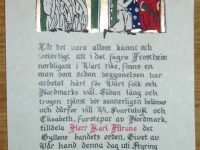 Låt det vara allom kännt och
veterligt att i det fagra Frostheim
nordligast i Vårt rike, finns en
man som sedan begynnelsen har
arbetat hårt för Vårt folk och
Nordmarks väl. Sådan lång och
trogen tjänst bör sannerligen belönas
och därför vill Vi, Svartulvk och
Elizabeth, furstepar av Nordmark,
tilldela Herr Karl Alrune
Gyllene bandets orden. Givet av
Vår hand denna dag uti Styring